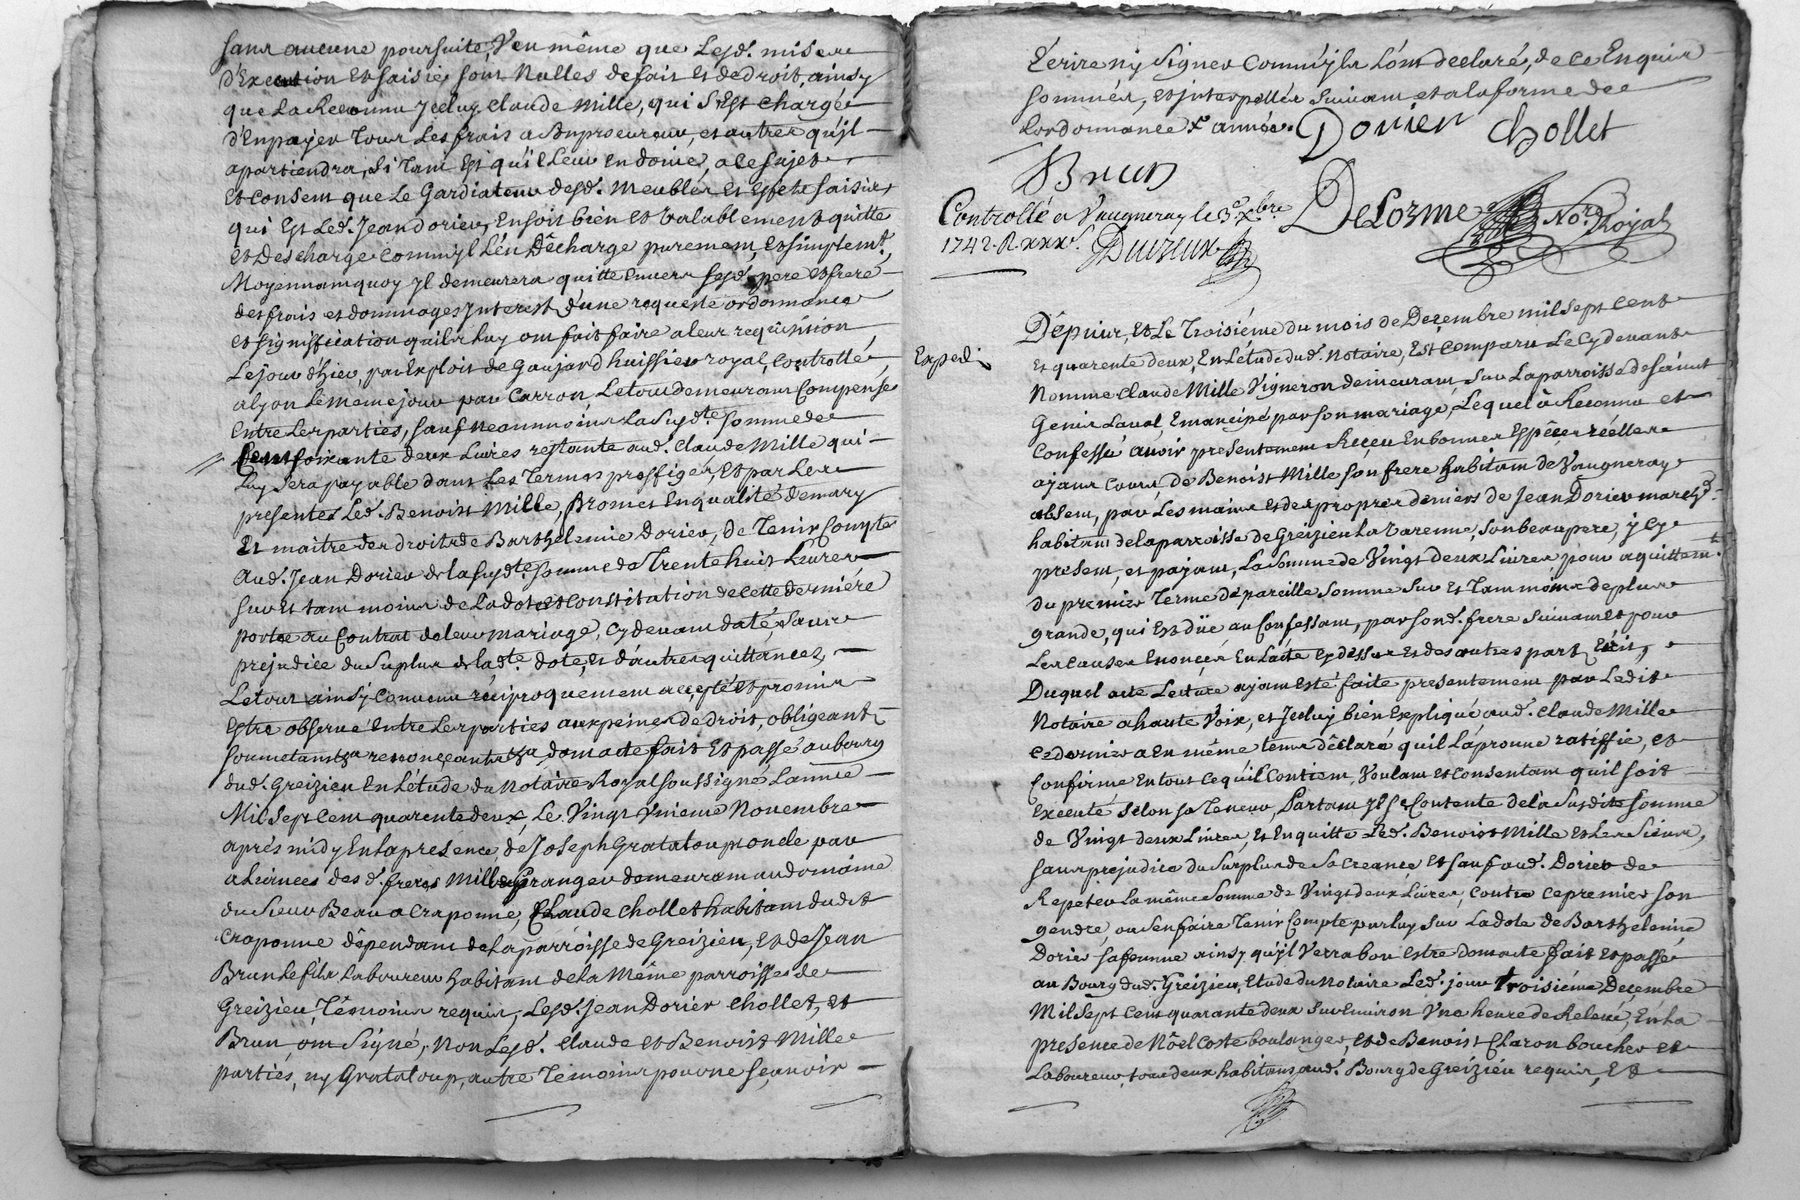 sans aucune poursuite, Veu même que Lesd. mises
d'Execution et saisies sont Nulles de fait et de droit, ainsy
que La Reconnu Jceluy Claude Mille, qui s'Est chargé
d'En payer Tous Les frais a Son procureur, et autres qu'jl
apartiendra, si Tant Est qu'il Leur En doive, a ce sujet
Et Consent que Le Gardiateur desd. Meubles et Effets saisies
qui Est Led. Jean Dorier, En soit bien et Valablement quitte
et Descharge comm'jl L'en Décharge purement, et simplemt.
Moyennant quoy jl demeurera quitte envers sesd. pere et frere
des frais et dommages Jnterest d'une requeste ordonnance
et signiffication qu'ils luy ont fait faire a leur requisition
Le jour d'hier, par Exploit de Gaujard huissier royal, Controllé
a Lyon Le même jour par Carron, Le tout demeurant Compensé
Entre Les parties, sauf neanmoins La susdte. somme de
Cent soixante deux Livres restante aud. Claude Mille qui
Luy sera payable dans Les Termes proffigés, Et par Les
presentes Led. Benoist Mille, Promet En qualité de mary
Et maitre des droits de Barthelemie Dorier, de Tenir Compte
aud. Jean Dorier de la susdte. somme de Trente huit Livres
sur et tant moins de La dote et Constitution de cette derniére
portée au Contrat de leur mariage, cy devant daté, sans
prejudice du surplus de ladte. dote, et d'autres quittances,
Le tout ainsy convenu réciproquement accepté et promis
Estre observé Entre Les parties aux peines de droit, obligeants
soumetants et renonçeants et ca, dont acte fait et passé au bourg
dud. Greizieu En L'étude du Notaire Royal soussigné L'année
Mil sept Cent quarente deux, Le Vingt Vnieme Novembre
aprés midy En la presence, de Joseph Grataloup oncle par
alliences des d. freres Mille Granger demeurant au domaine
du Sieur Beau a Craponne, Claude Chollet habitant dudit
Craponne dépendant de La parroisse de Greizieu, Et de Jean
Brun Le fils Laboureur habitant de la Même parroisse de
Greizieu, Témoins requis, Lesd. Jean Dorier Chollet, et
Brun, ont Signé, Non Lesd. Claude et Benoist Mille
parties, ny Grataloup, autre Témoins pour ne sçavoir
Ecrire ny Signer comm'jls L'ont declaré, de ce Enquis
sommés, et jnterpellés suivant et a la forme de
L'ordonnance
Dorier Chollet
Brun
Controllé a Vaugneray le 3e Xbre
1742. R xxx s.
Duireux
DeLorme No. Royal
Exped.
Dépuis, Et Le Troisiéme du mois de Decembre mil sept Cent
et quarente deux, En L'étude dud. Notaire, Est Comparu Le Cy devant
Nommé Claude Mille Vigneron demeurant, Sur La parroisse de saint
Genis Laval, Emancipé par son mariage, Lequel a Reconnu et
Confessé avoir presentement Reçeu En bonnes Espêces réelles
ayant cours, de Benoist Mille son frere habitant de Vaugneray
absent, par Les mains et des propres deniers de Jean Dorier march'd.
habitant de la parroisse de Greizieu La Varenne, son beau pere, jcy
present, et payant, La Somme de Vingt deux Livres, pour aquittemt.
du premier Terme de pareille Somme Sur et Tant moins de plus
grande, qui Est düe au Confessant, par son d. frere suivant et pour
Les Causes Enoncées En L'acte cy dessus et des autres part Ecrit,
Duquel acte Lecture ayant esté faite presentement par Ledit
Notaire a haute Voix, et Jceluy bien Expliqué aud. Claude Mille
ce dernier a En même tems déclaré qu'il L'aprouve ratiffie, et
Confirme En tout ce qu'il Contient, Voulant et Consentant qu'il soit
Executé selon sa Teneur, Partant jl se Contente de la Susdite somme
de Vingt deux Livres, Et En quitte Led. Benoist Mille et Les Siens,
sans prejudice du Surplus de Sa Creance, Et sauf aud. Dorier de
Repeter La même Somme de Vingt deux Livres, Contre ce premier son
gendre, ou s'en faire Tenir Compte par luy Sur La dote de Barthelemie
Dorier sa femme ainsy qu'jl Verra bon estre dont acte fait et passé
au Bourg dud. Greizieu, Etude du Notaire Led. jour troisiéme Decembre
Mil Sept Cent quarante deux Sur Environ Vne heure de Relevé, En La
presence de Noêl Coste boulanger, Et de Benoist Claron boucher et
Laboureur, tous deux habitans, aud. Bourg de Greizieu requis, Et